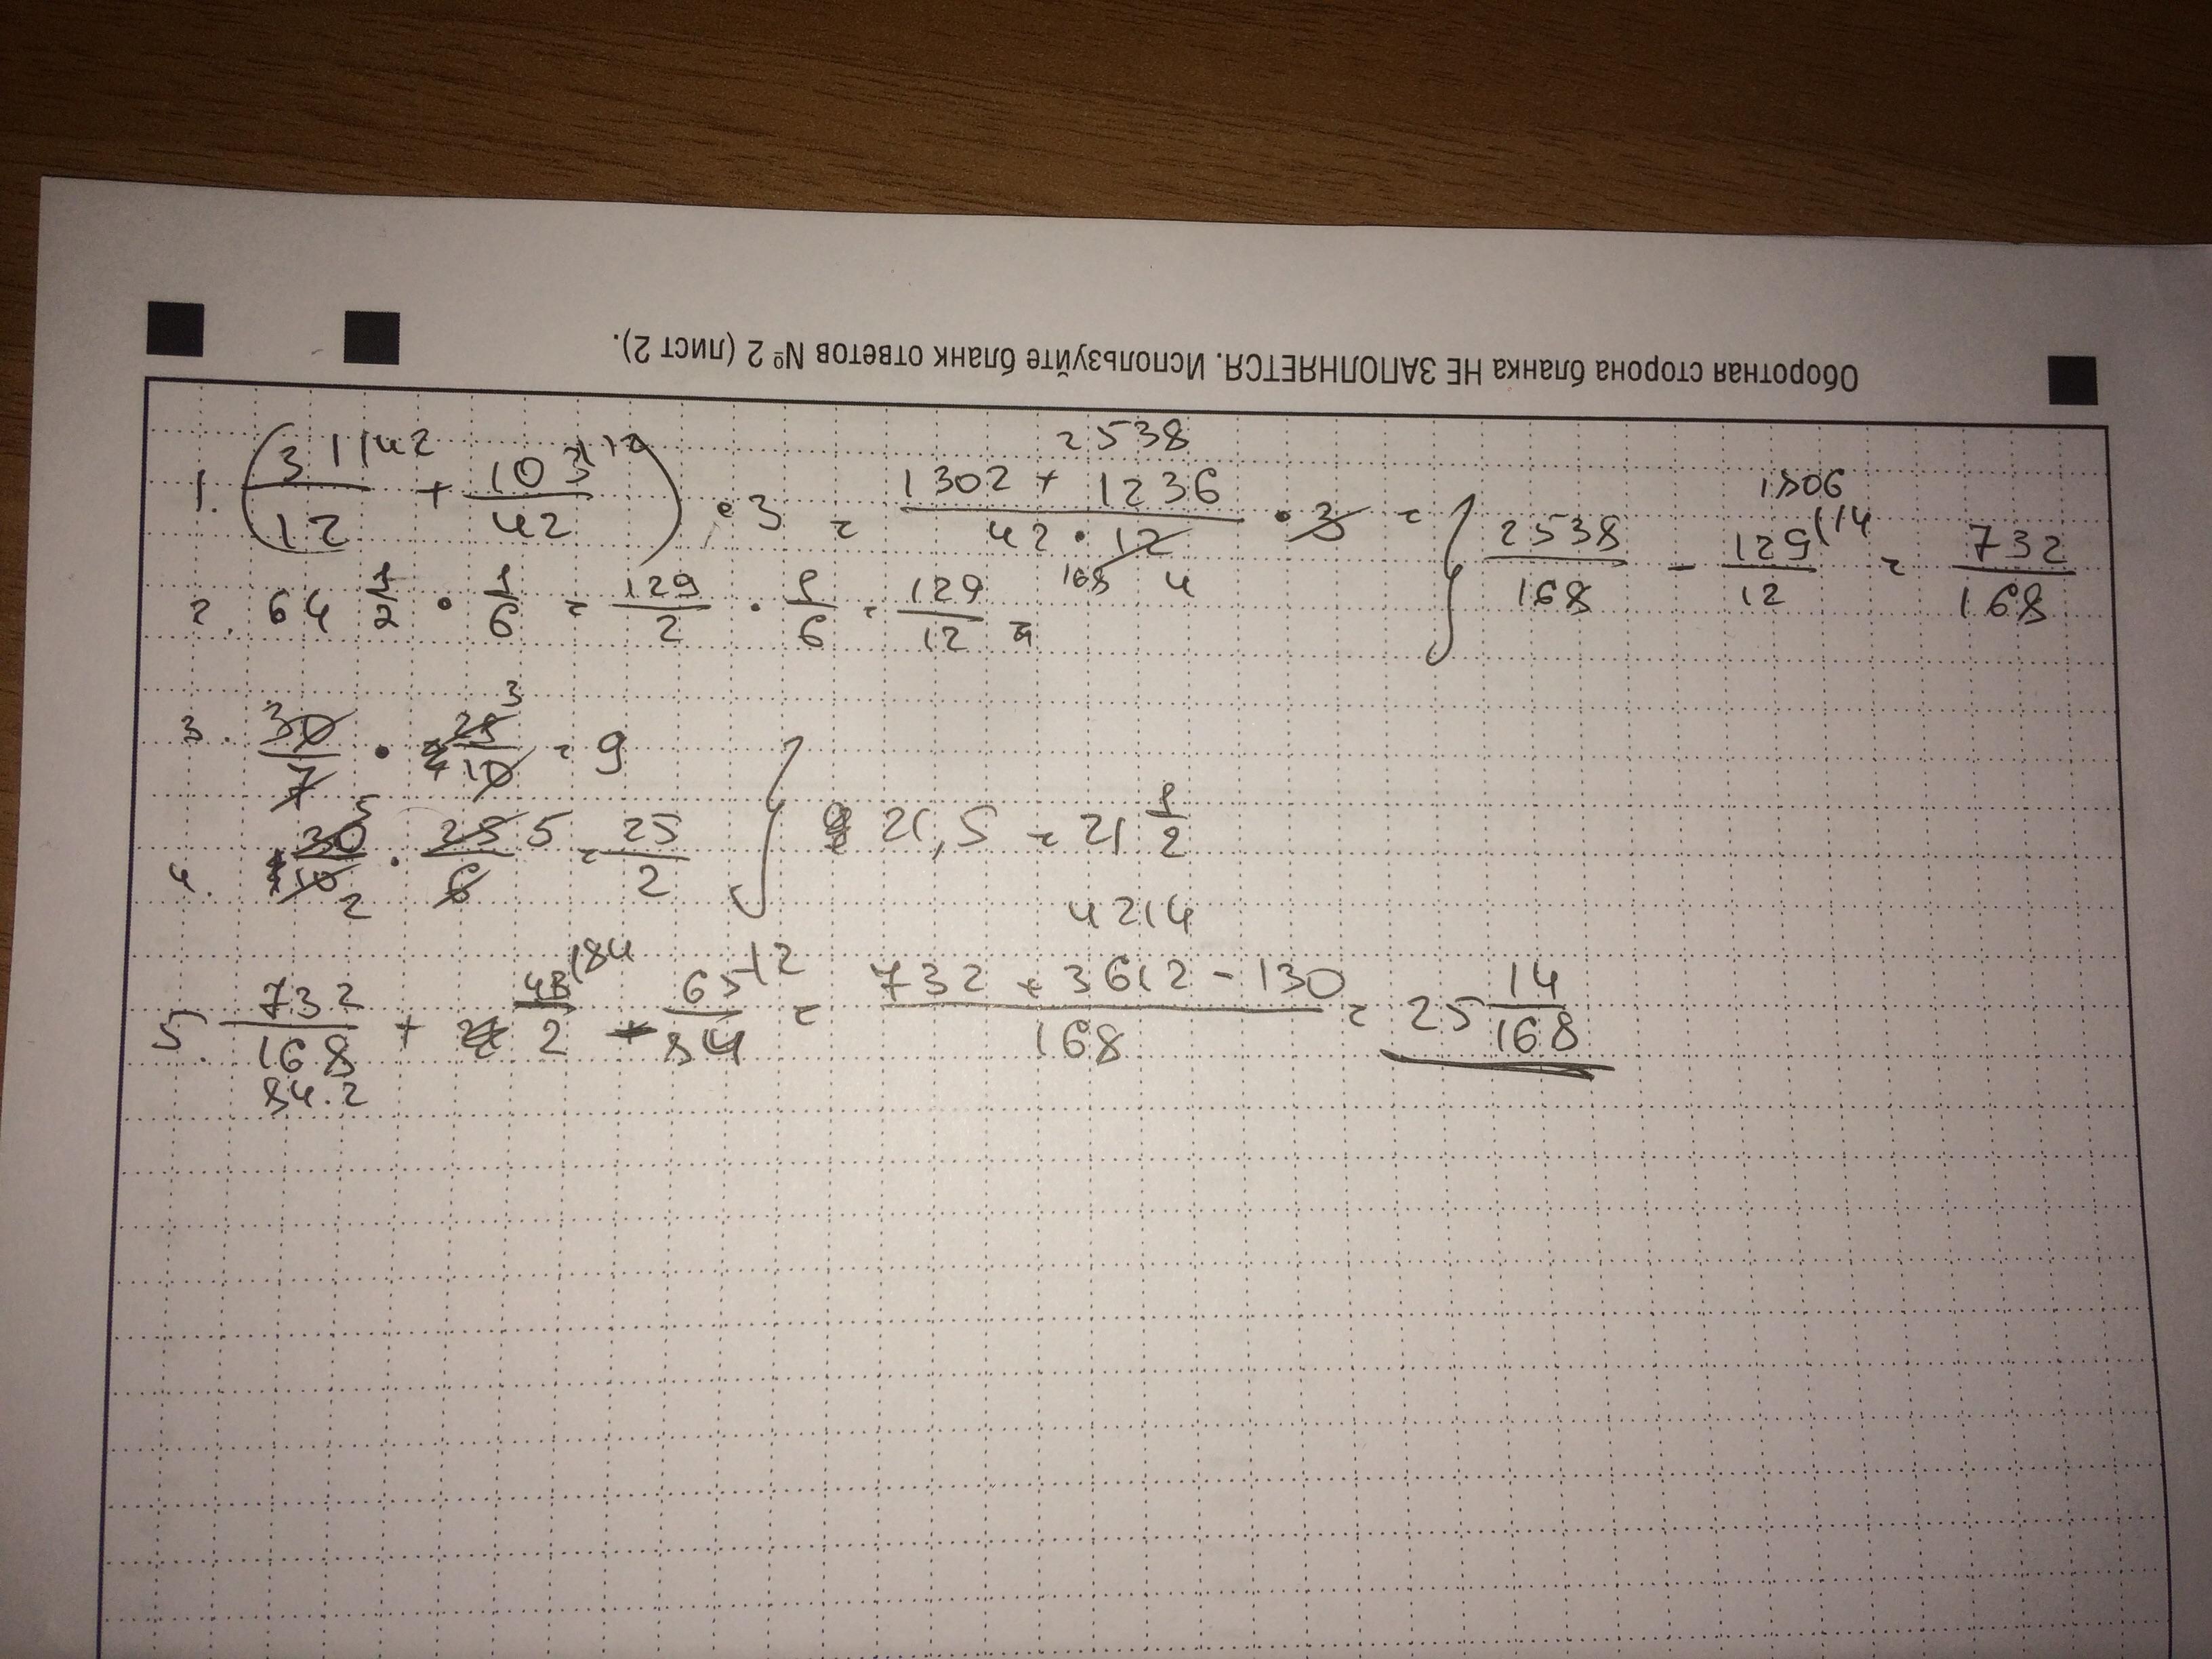 Оборотная сторона бланка НЕ ЗАПОЛНЯЕТСЯ. Используйте бланк ответов № 2 (лист 2).
2538
1. (31/12 |42 + 103/42 |12) · 3 = (1302 + 1236)/(42 · 12) · 3 = 2538/168 - 129/12 |14 = 732/168
1806
168 4
2. 64 1/2 · 1/6 = 129/2 · 1/6 = 129/12
3. 30/7 · 21/10 = 9
3
4. 30/10 · 25/6 = 25/2
5 5
2
21,5 = 21 1/2
4214
5. 732/168 + 43/2 |84 - 65/84 |2 = (732 + 3612 - 130)/168 = 25 14/168
84.2